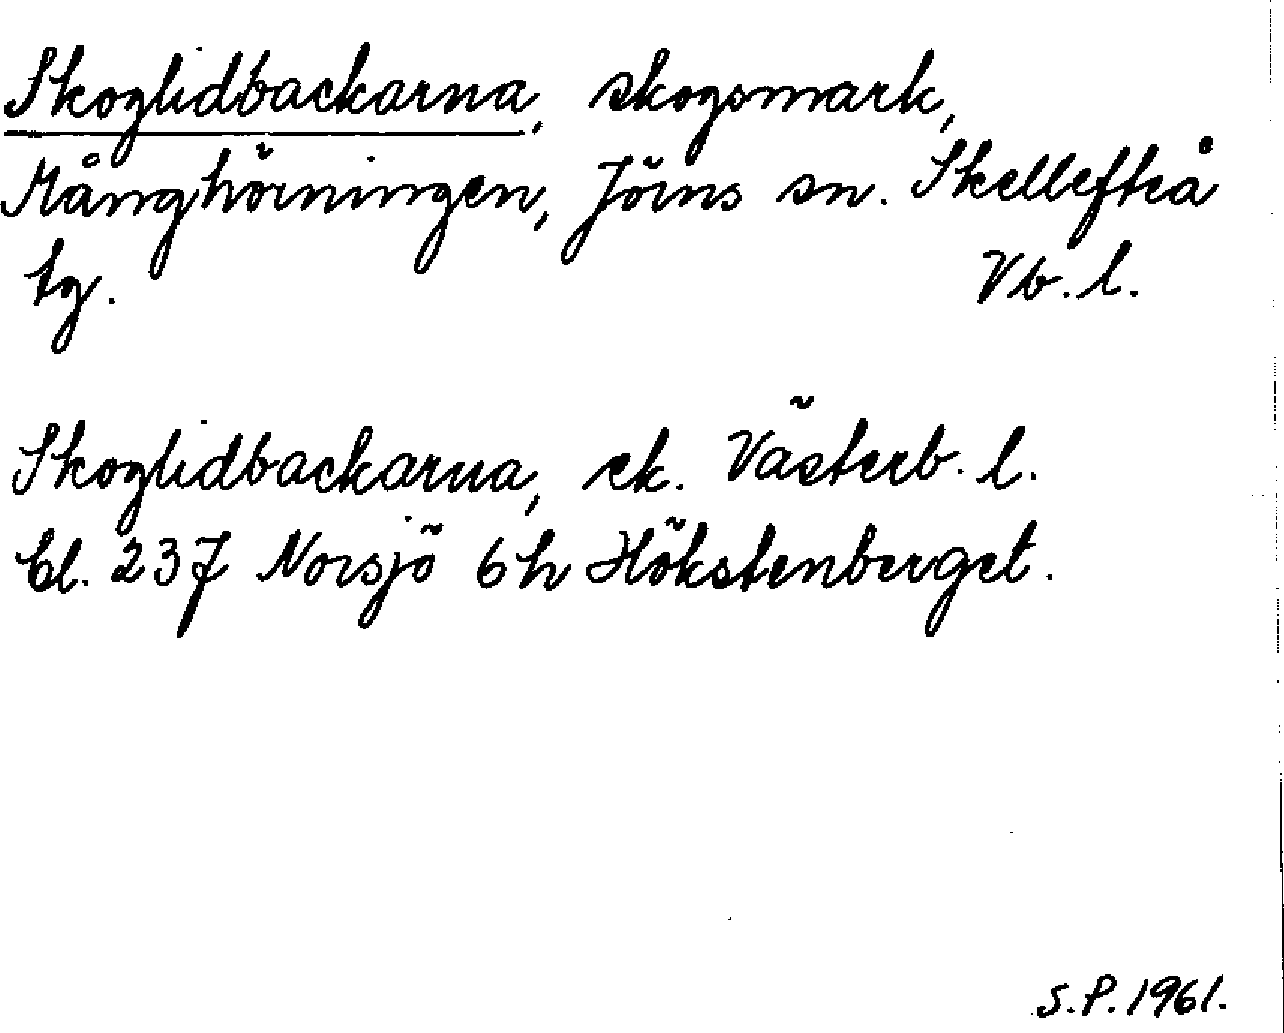 Skoglidbackarna, skogsmark,
Månghörningen, Jörns sn. Skellefteå
tg. Vb. l.
Skoglidbackarna, ek. Västerb. l.
bl. 237 Norsjö 6h Hökstenberget.
S.P. 1961.